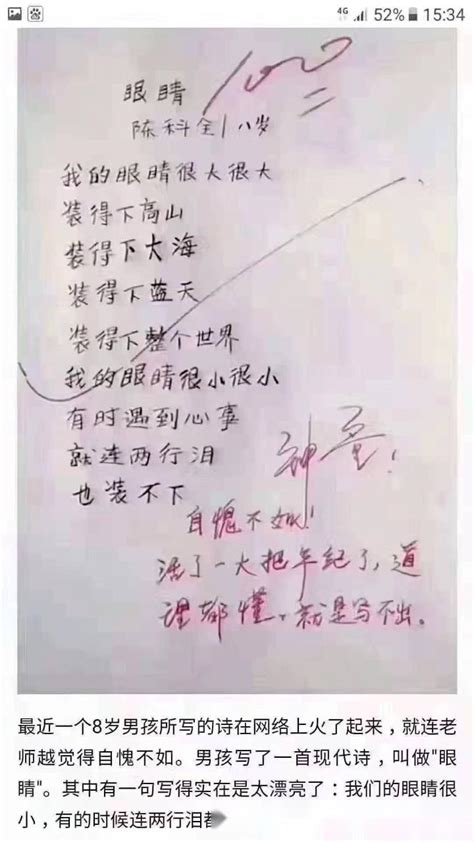 4G 52% 15:34
100
眼睛
陈科全 八岁
我的眼睛很大很大
装得下高山
装得下大海
装得下蓝天
装得下整个世界
我的眼睛很小很小
有时遇到心事
就连两行泪
也装不下
神童！
自愧不如！
活了一大把年纪了，道
理都懂。就是写不出。
最近一个8岁男孩所写的诗在网络上火了起来，就连老
师越觉得自愧不如。男孩写了一首现代诗，叫做"眼
睛"。其中有一句写得实在是太漂亮了：我们的眼睛很
小，有的时候连两行泪都